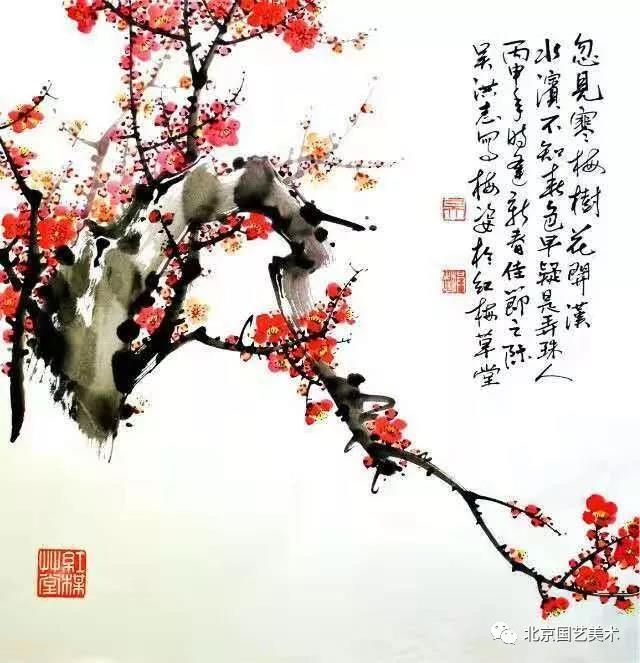 忽見寒梅樹花開漢
水濱不知春色早疑是弄珠人
丙申年時逢新春佳節之际
吴洪志写梅姿於红梅草堂
紅楳艸堂
北京国艺美术